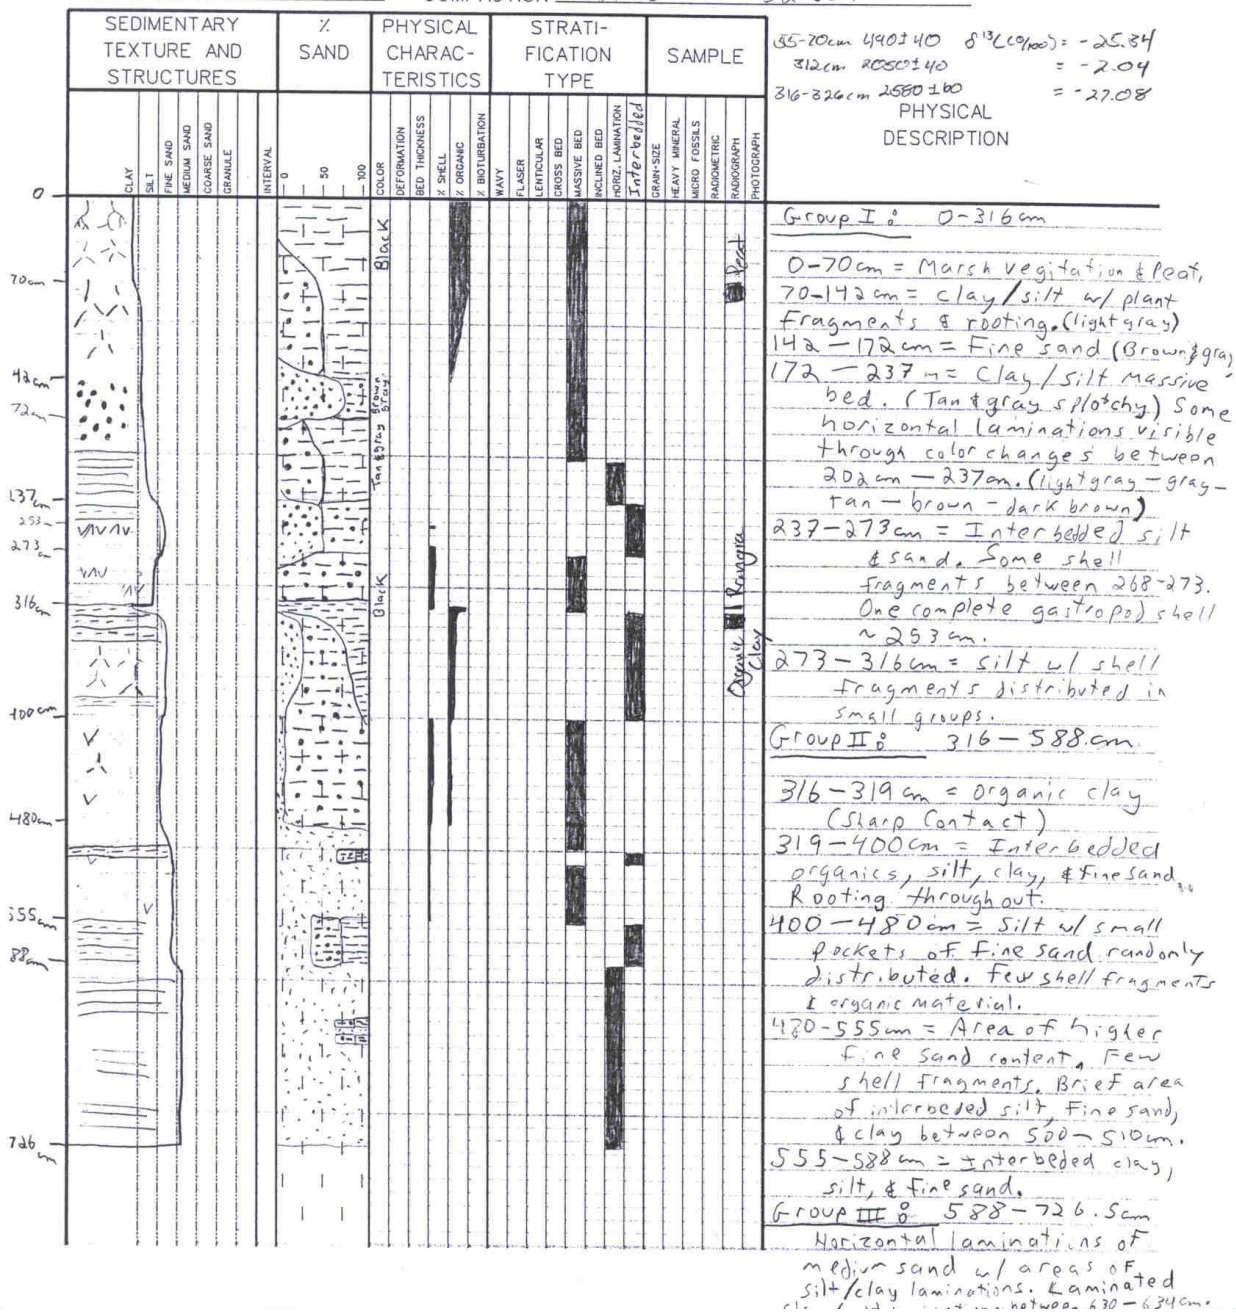 SEDIMENTARY
TEXTURE AND
STRUCTURES
%
SAND
PHYSICAL
CHARAC-
TERISTICS
STRATI-
FICATION
TYPE
SAMPLE
55-70cm 490±40 δ13C(0/00) = -25.34
312cm 2050±40 = -2.04
316-326cm 2580±60 = -27.08
PHYSICAL
DESCRIPTION
CLAY
SILT
FINE SAND
MEDIUM SAND
COARSE SAND
GRANULE
INTERVAL
0
50
100
COLOR
DEFORMATION
BED THICKNESS
% SHELL
% ORGANIC
% BIOTURBATION
WAVY
FLASER
LENTICULAR
CROSS BED
MASSIVE BED
INCLINED BED
HORIZ. LAMINATION
Interbedded
GRAIN-SIZE
HEAVY MINERAL
MICRO FOSSILS
RADIOMETRIC
RADIOGRAPH
PHOTOGRAPH
0
70cm
42cm
72cm
237cm
253cm
273cm
316cm
400cm
480cm
555cm
88cm
726cm
Black
Brown
Gray
Tan & gray
Black
Peat
Rangia
Organic
Clay
Group I: 0-316cm
0-70cm = Marsh vegitation & Peat,
70-142cm = clay/silt w/ plant
fragments & rooting. (light gray)
142-172cm = Fine sand (Brown & gray
172-237m = Clay/silt Massive
bed. (Tan & gray splotchy) Some
horizontal laminations visible
through color changes between
202cm-237cm. (light gray-gray-
tan-brown-dark brown)
237-273cm = Interbedded silt
& sand. Some shell
fragments between 268-273.
One complete gastropod shell
~253cm.
273-316cm = silt w/ shell
fragments distributed in
small groups.
Group II: 316-588.cm
316-319cm = organic clay
(Sharp Contact)
319-400cm = Interbedded
organics, silt, clay, & fine sand.
Rooting throughout.
400-480cm = Silt w/ small
pockets of fine sand randomly
distributed. Few shell fragments
& organic material.
480-555cm = Area of higher
fine sand content. Few
shell fragments. Brief area
of interbeded silt, fine sand,
& clay between 500-510cm.
555-588cm = Interbeded clay,
silt, & fine sand.
Group III: 588-726.5cm
Horizontal laminations of
medium sand w/ areas of
silt/clay laminations. Laminated
between 630-634cm.